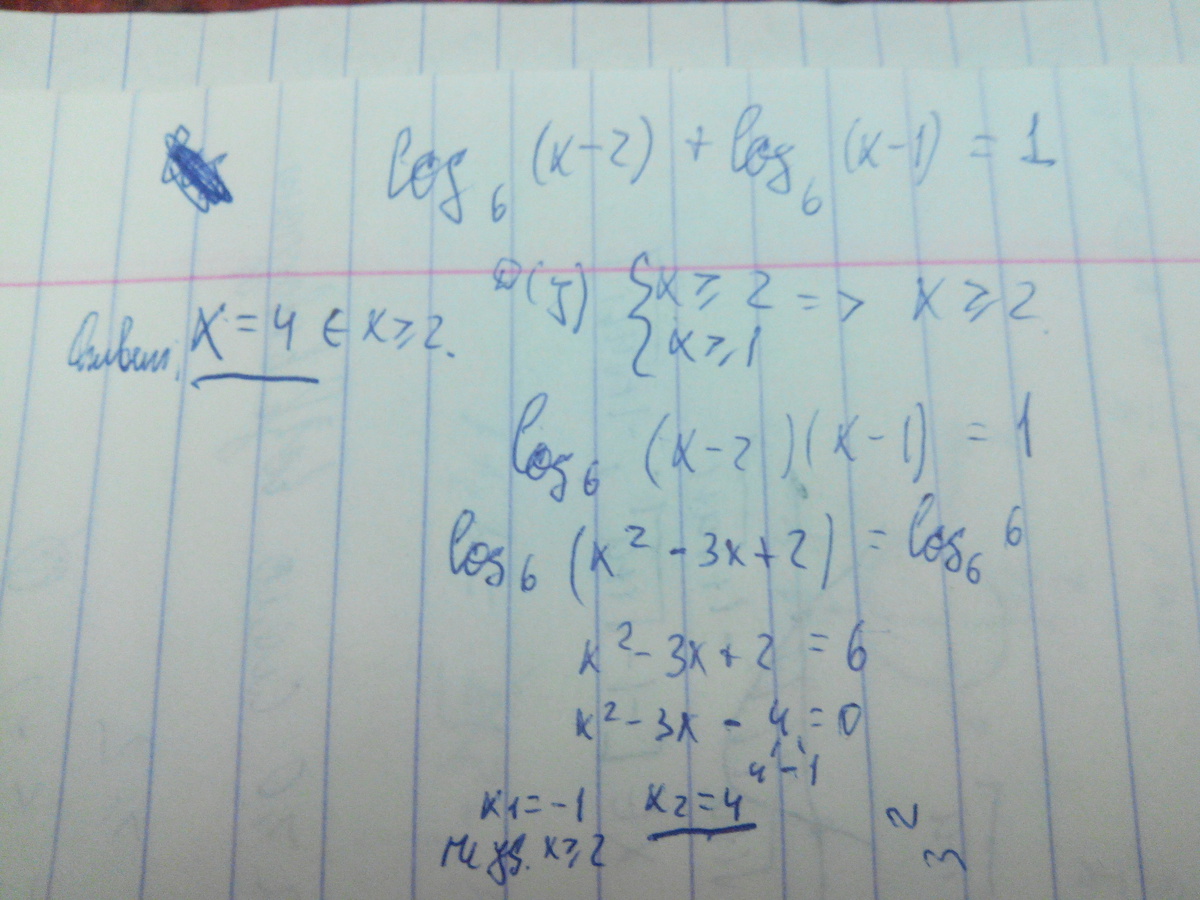 log₆ (x-2) + log₆ (x-1) = 1
D(y) { x ≥ 2 => x ≥ 2.
{ x ≥ 1
Ответ: x = 4 ∈ x ≥ 2.
log₆ (x-2)(x-1) = 1
log₆ (x² - 3x + 2) = log₆ 6
x² - 3x + 2 = 6
x² - 3x - 4 = 0
4 -1
x1 = -1 x2 = 4
не уд. x ≥ 2
2
3